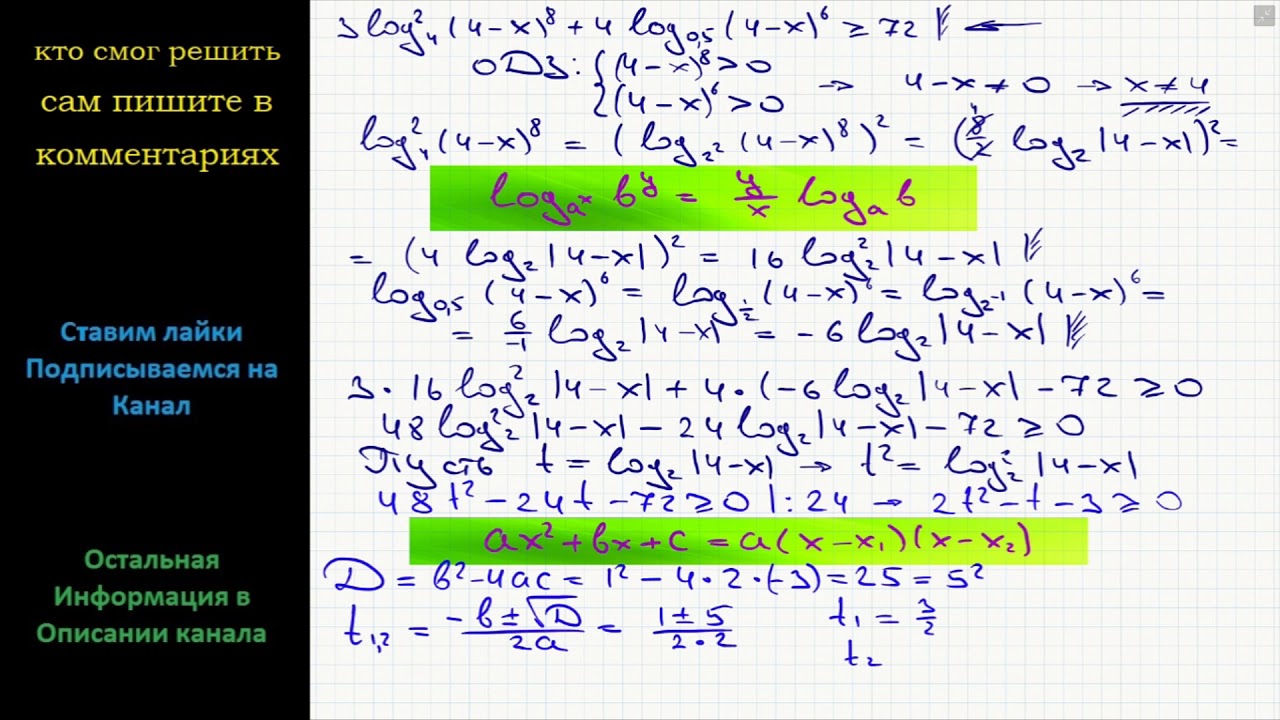 кто смог решить
сам пишите в
комментариях
Ставим лайки
Подписываемся на
Канал
Остальная
Информация в
Описании канала
3 log²₄ (4-x)⁸ + 4 log₀,₅ (4-x)⁶ ≥ 72
ОДЗ: { (4-x)⁸ > 0
{ (4-x)⁶ > 0 → 4-x ≠ 0 → x ≠ 4
log²₄ (4-x)⁸ = ( log_{2²} (4-x)⁸ )² = ( 8/2 log₂ |4-x| )² =
log_{aˣ} b^y = y/x log_a b
= (4 log₂ |4-x|)² = 16 log²₂ |4-x|
log₀,₅ (4-x)⁶ = log_{1/2} (4-x)⁶ = log_{2⁻¹} (4-x)⁶ =
= 6/-1 log₂ |4-x| = -6 log₂ |4-x|
3 · 16 log²₂ |4-x| + 4 · (-6 log₂ |4-x| - 72 ≥ 0
48 log²₂ |4-x| - 24 log₂ |4-x| - 72 ≥ 0
Пусть t = log₂ |4-x| → t² = log²₂ |4-x|
48t² - 24t - 72 ≥ 0 |:24 → 2t² - t - 3 ≥ 0
ax² + bx + c = a(x-x₁)(x-x₂)
D = b² - 4ac = 1² - 4·2·(-3) = 25 = 5²
t₁,₂ = (-b ± √D)/2a = (1 ± 5)/(2·2) t₁ = 3/2
t₂